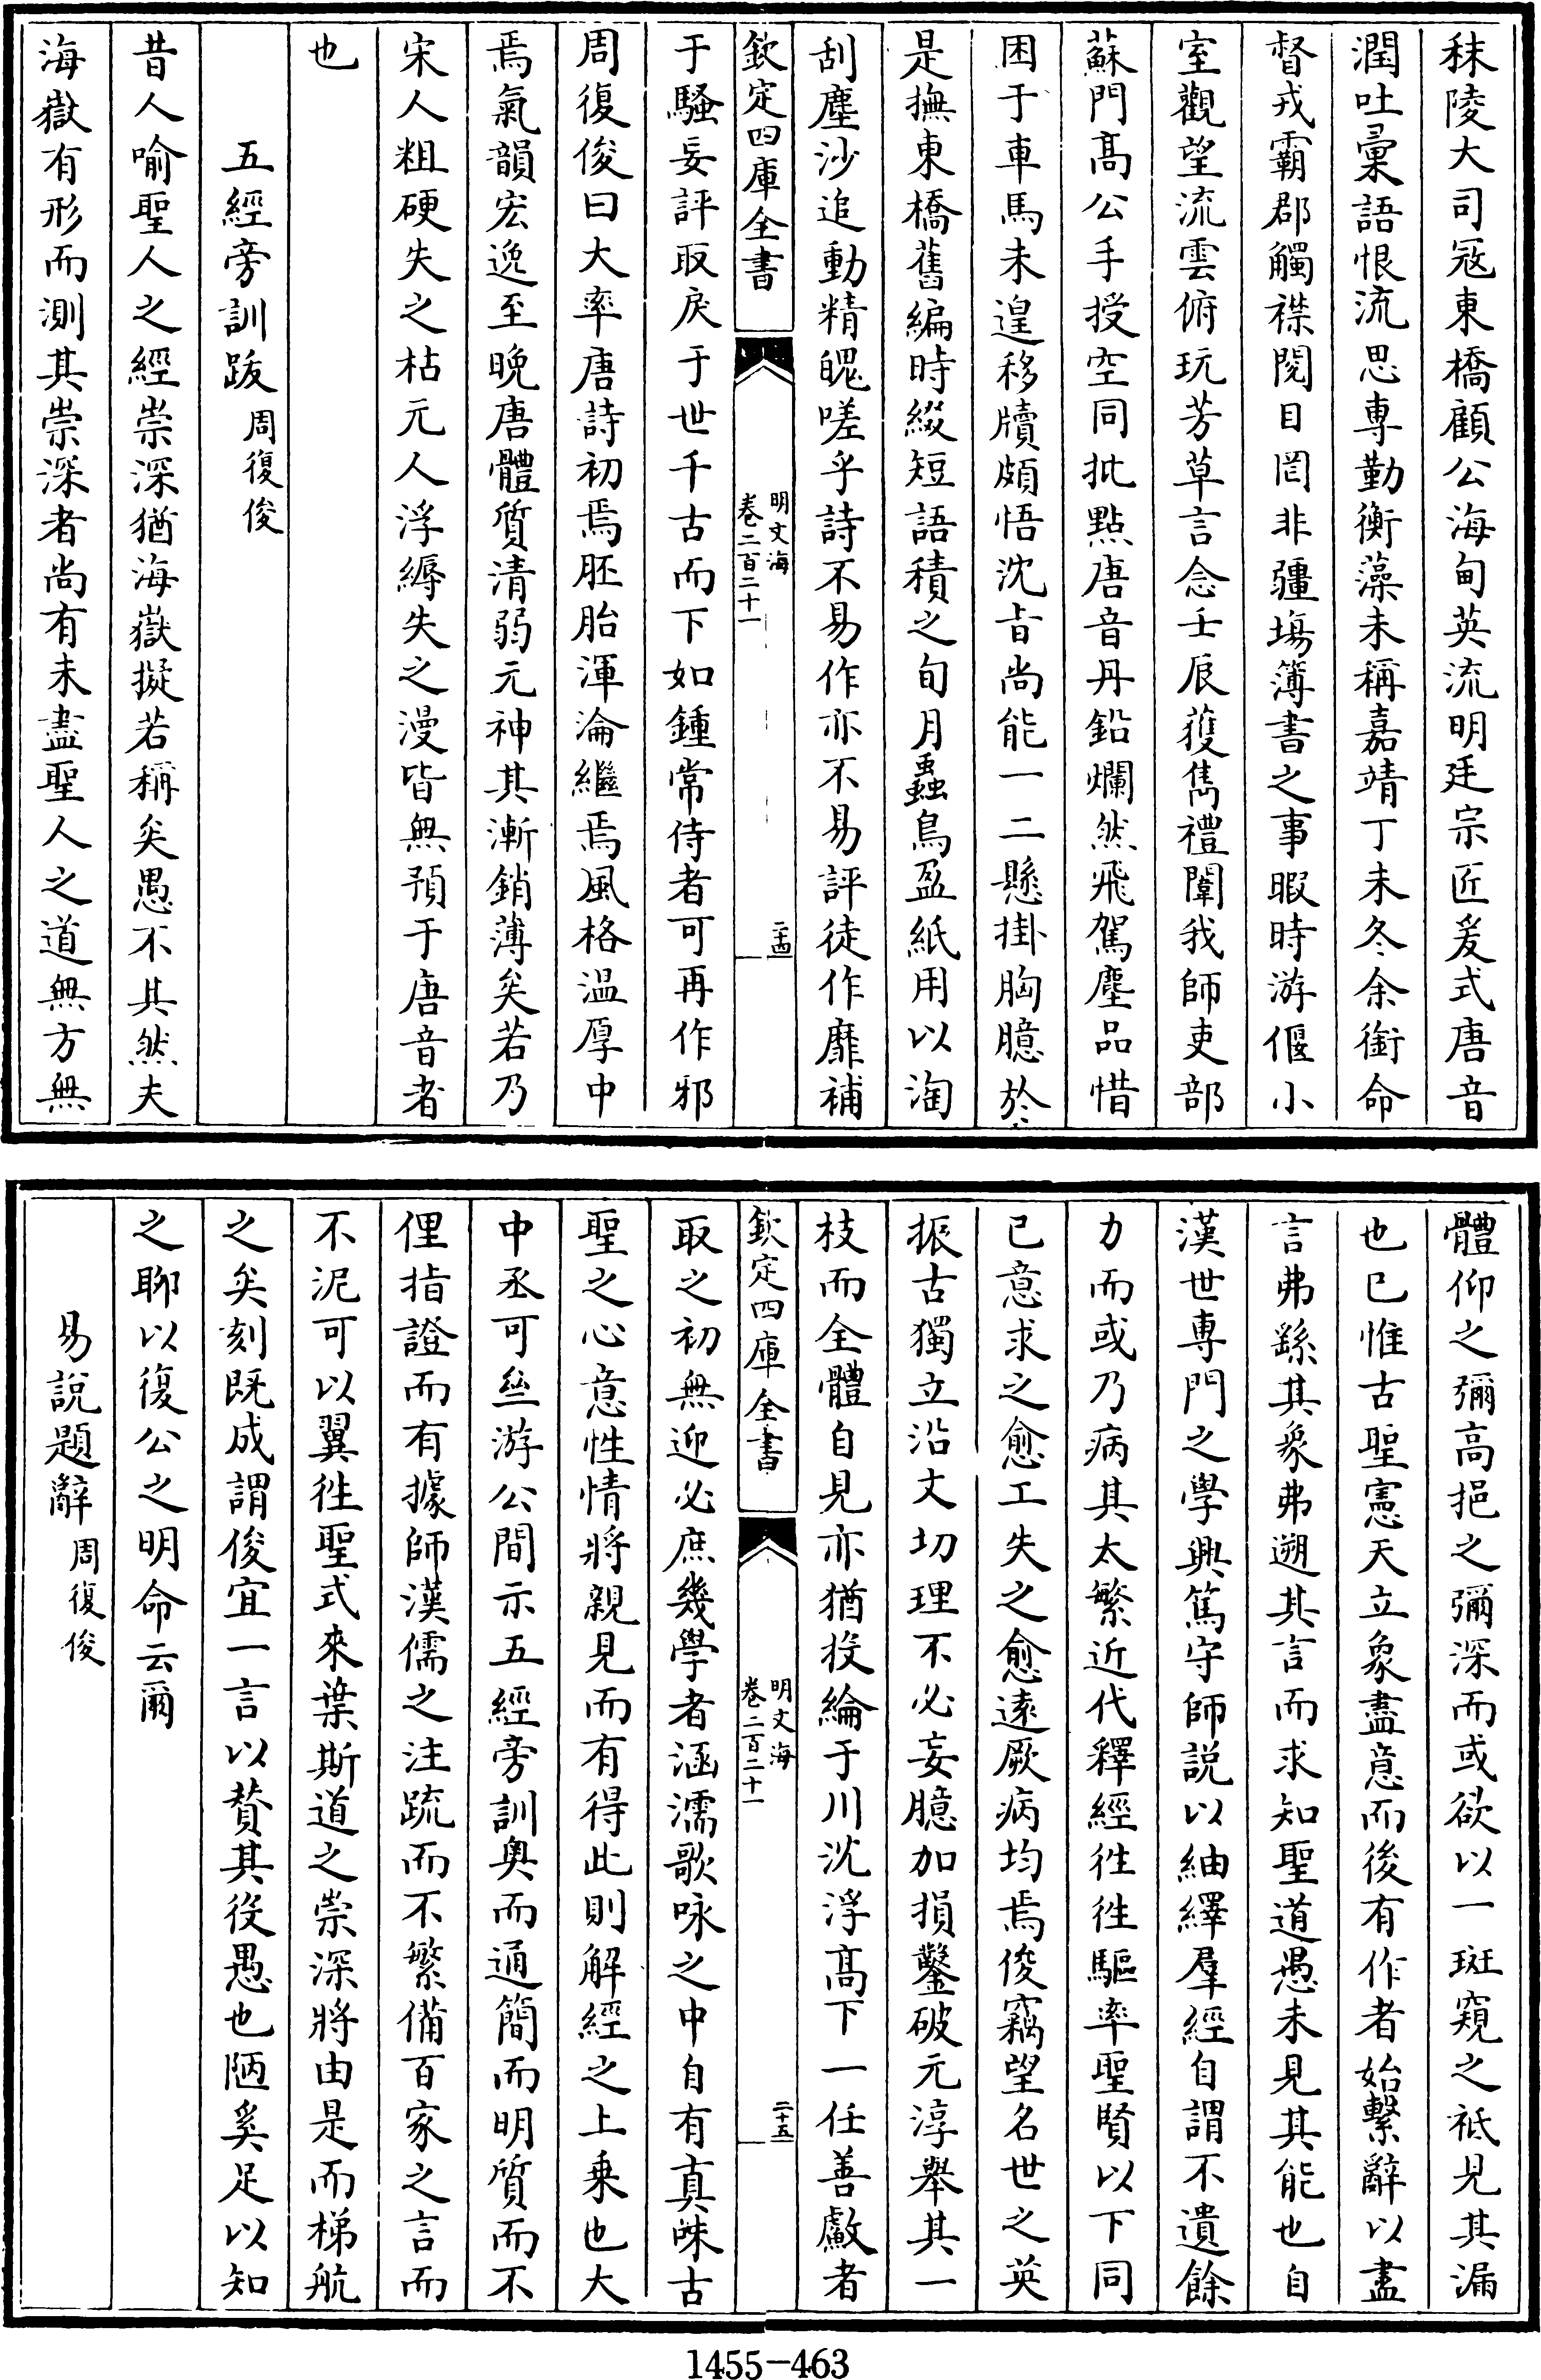 秣陵大司冦東橋顧公海甸英流明廷宗匠爰式唐音
潤吐彚語恨流思專勤衡藻未稱嘉靖丁未冬余銜命
督戎霸郡觸襟閱目罔非疆塲簿書之事暇時游偃小
室觀望流雲俯玩芳草言念壬辰獲雋禮闈我師吏部
蘇門高公手授空同批點唐音丹鉛爛然飛駕塵品惜
困于車馬未遑移牘頗悟沈旨尚能一二懸掛胸臆於
是撫東橋舊編時綴短語積之旬月蟲鳥盈紙用以淘
刮塵沙追動精魄嗟乎詩不易作亦不易評徒作靡補
欽定四庫全書
明文海
卷二百二十一
二十四
于騷妄評取戾于世千古而下如鍾常侍者可再作邪
周復俊曰大率唐詩初焉胚胎渾淪繼焉風格温厚中
焉氣韻宏逸至晚唐體質清弱元神其漸銷薄矣若乃
宋人粗硬失之枯元人浮縟失之漫皆無預于唐音者
也
五經旁訓跋 周復俊
昔人喻聖人之經崇深猶海嶽擬若稱矣愚不其然夫
海嶽有形而測其崇深者尚有未盡聖人之道無方無
體仰之彌高挹之彌深而或欲以一斑窺之祇見其漏
也已惟古聖憲天立象盡意而後有作者始繫辭以盡
言弗繇其象弗遡其言而求知聖道愚未見其能也自
漢世専門之學興篤守師説以紬繹羣經自謂不遺餘
力而或乃病其太繁近代釋經徃徃驅率聖賢以下同
已意求之愈工失之愈遠厥病均焉俊竊望名世之英
振古獨立沿文切理不必妄臆加損鑿破元淳舉其一
枝而全體自見亦猶投綸于川沈浮高下一任善𢿛者
欽定四庫全書
明文海
卷二百二十一
二十五
取之初無迎必庶幾學者涵濡歌咏之中自有真味古
聖之心意性情將親見而有得此則解經之上乗也大
中丞可丝游公間示五經旁訓奥而通簡而明質而不
俚指證而有據師漢儒之注疏而不繁備百家之言而
不泥可以翼徃聖式來葉斯道之崇深將由是而梯航
之矣刻既成謂俊宜一言以賛其役愚也陋奚足以知
之聊以復公之明命云爾
易説題辭 周復俊
1455-463